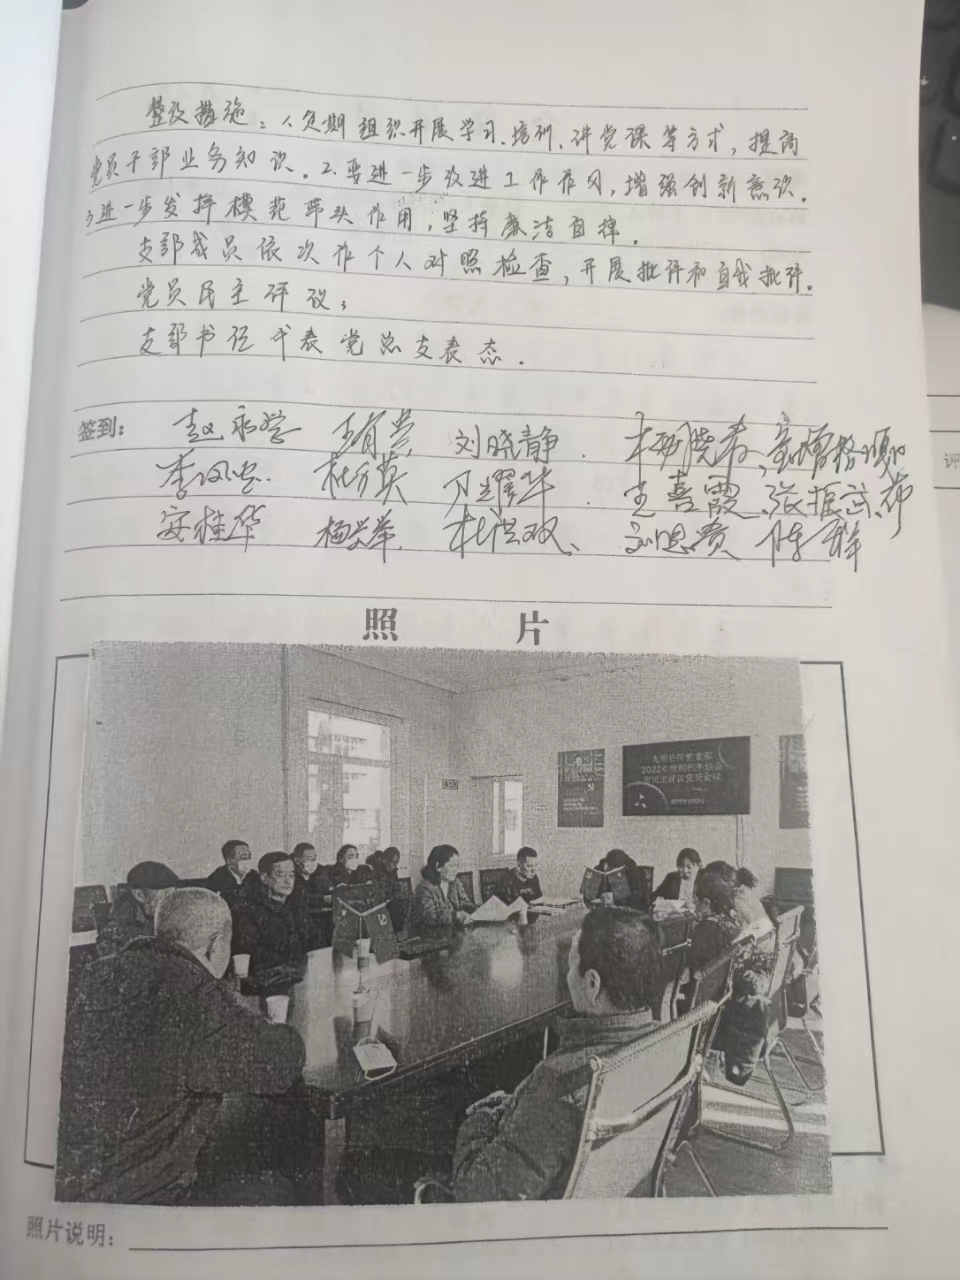 整改措施：1.定期组织开展学习、培训、讲党课等方式，提高
党员干部业务知识。2.要进一步改进工作作风，增强创新意识。
3.进一步发挥模范带头作用，坚持廉洁自律。
支部成员依次作个人对照检查，开展批评和自我批评。
党员民主评议；
支部书记代表党总支表态.
签到： 刘晓静 杨晓春
杜万英 王喜霞 张振武
安桂华 杨兴举 杜洪双 刘恩贵 陈祥
照 片
2022年度组织生活会
和民主评议党员会议
照片说明：
评